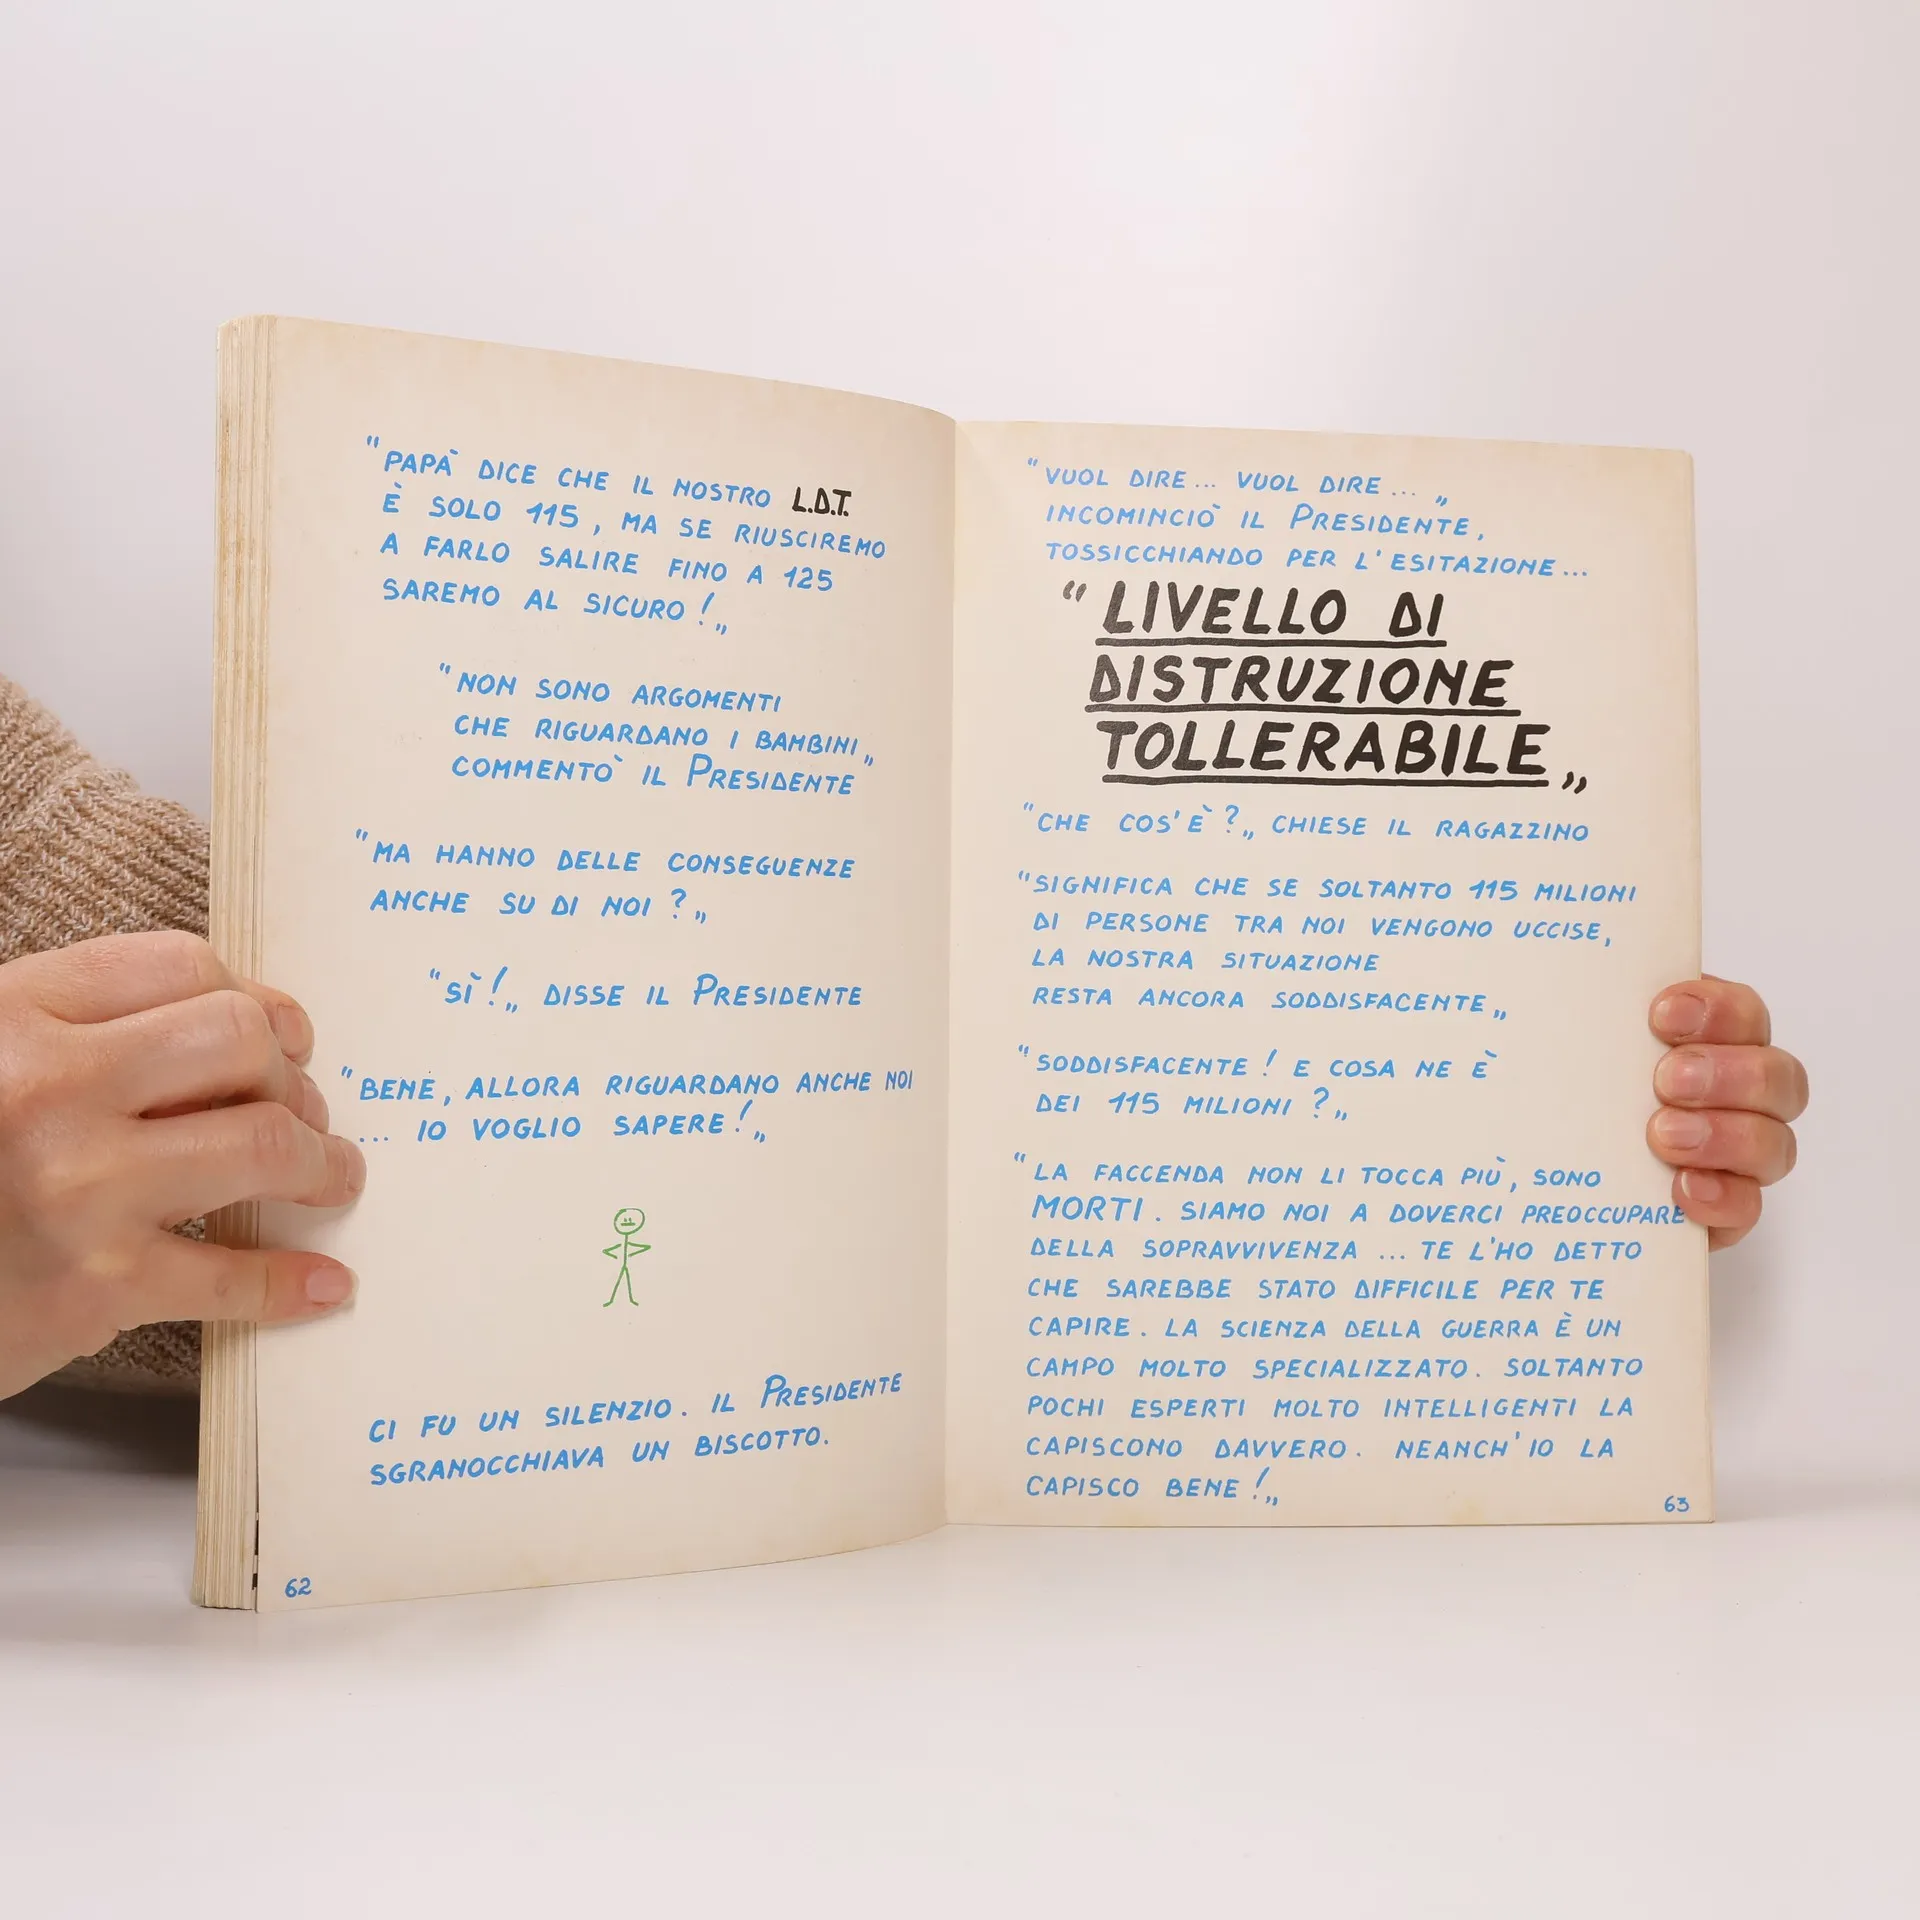 “PAPÀ DICE CHE IL NOSTRO L.D.T.
È SOLO 115, MA SE RIUSCIREMO
A FARLO SALIRE FINO A 125
SAREMO AL SICURO!„
“NON SONO ARGOMENTI
CHE RIGUARDANO I BAMBINI„
COMMENTÒ IL PRESIDENTE
“MA HANNO DELLE CONSEGUENZE
ANCHE SU DI NOI?„
“SÌ!„ DISSE IL PRESIDENTE
“BENE, ALLORA RIGUARDANO ANCHE NOI
... IO VOGLIO SAPERE!„
CI FU UN SILENZIO. IL PRESIDENTE
SGRANOCCHIAVA UN BISCOTTO.
62
“VUOL DIRE... VUOL DIRE...„
INCOMINCIÒ IL PRESIDENTE,
TOSSICCHIANDO PER L'ESITAZIONE...
“LIVELLO DI
DISTRUZIONE
TOLLERABILE„
“CHE COS'È?„ CHIESE IL RAGAZZINO
“SIGNIFICA CHE SE SOLTANTO 115 MILIONI
DI PERSONE TRA NOI VENGONO UCCISE,
LA NOSTRA SITUAZIONE
RESTA ANCORA SODDISFACENTE„
“SODDISFACENTE! E COSA NE È
DEI 115 MILIONI?„
“LA FACCENDA NON LI TOCCA PIÙ, SONO
MORTI. SIAMO NOI A DOVERCI PREOCCUPARE
DELLA SOPRAVVIVENZA ... TE L'HO DETTO
CHE SAREBBE STATO DIFFICILE PER TE
CAPIRE. LA SCIENZA DELLA GUERRA È UN
CAMPO MOLTO SPECIALIZZATO. SOLTANTO
POCHI ESPERTI MOLTO INTELLIGENTI LA
CAPISCONO DAVVERO. NEANCH'IO LA
CAPISCO BENE!„
63